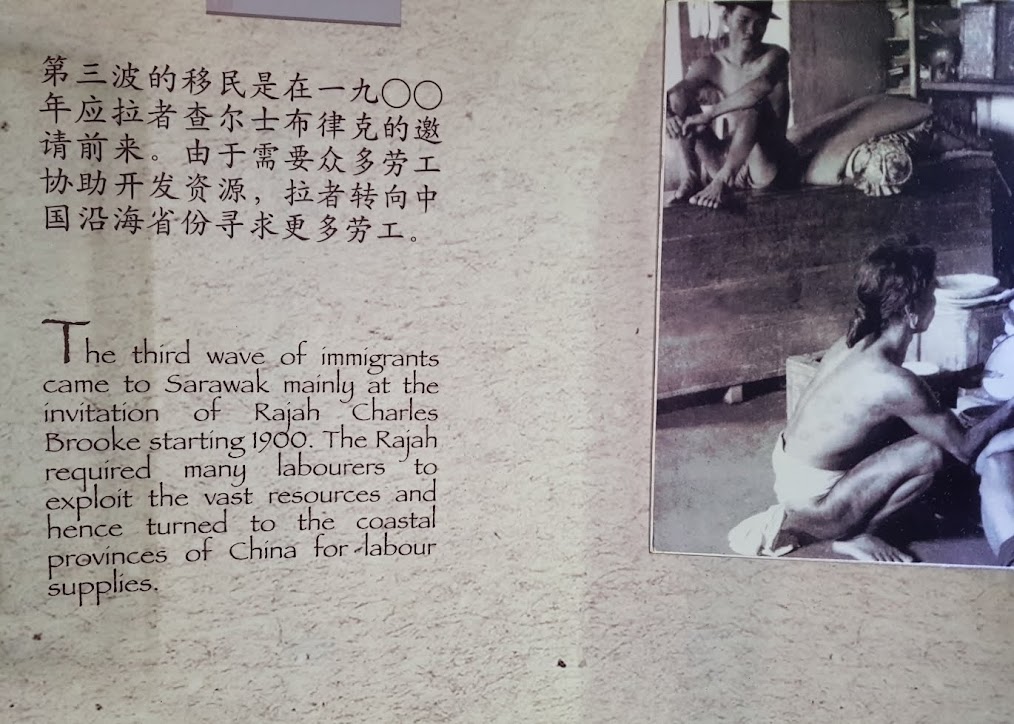 第三波的移民是在一九〇〇
年应拉者查尔士布律克的邀
请前来。由于需要众多劳工
协助开发资源，拉者转向中
国沿海省份寻求更多劳工。
The third wave of immigrants
came to Sarawak mainly at the
invitation of Rajah Charles
Brooke starting 1900. The Rajah
required many labourers to
exploit the vast resources and
hence turned to the coastal
provinces of China for labour
supplies.